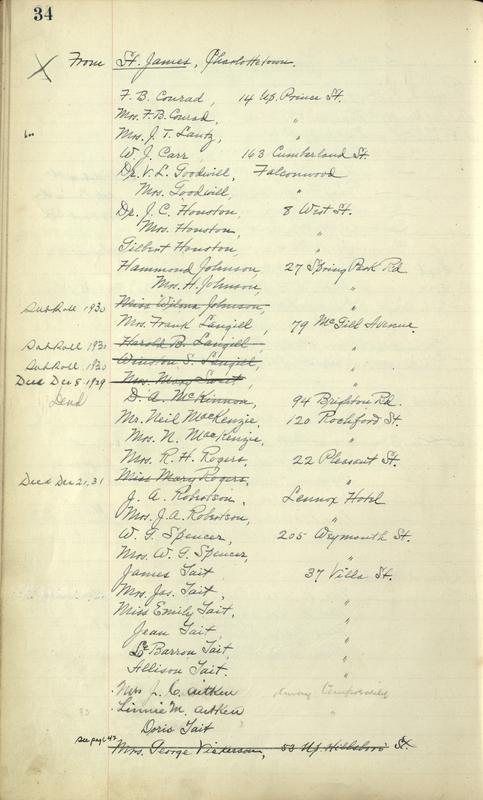 34
X From St. James, Charlottetown.
F. B. Conrad, 14 Up. Prince St.
Mrs. F. B. Conrad, "
Mrs. J. T. Lantz, "
W. J. Carr, 163 Cumberland St.
Dr. V. L. Goodwill, Falconwood
Mrs. Goodwill, "
Dr. J. C. Houston, 8 West St.
Mrs. Houston, "
Gilbert Houston, "
Hammond Johnson, 27 Spring Park Rd
Mrs. H. Johnson, "
Miss Wilma Johnson, "
Sub Roll 1930 Mrs. Frank Langill, 79 McGill Avenue.
Sub Roll 1930 Harold B. Langill "
Sub Roll. 1930 Winston S. Langill, "
Died Dec 8 1929 Mrs. Mary Swit, "
Dead D. A. McKinnon, 94 Brighton Rd.
Mr. Neil MacKenzie, 120 Rochford St.
Mrs. N. MacKenzie, "
Mrs. R. H. Rogers, 22 Pleasant St.
Died Dec 21, 31 Miss Mary Rogers, "
J. A. Robertson, Lennox Hotel
Mrs. J. A. Robertson, "
W. G. Spencer, 205 Weymouth St.
Mrs. W. G. Spencer, "
James Tait 37 Villa St.
Mrs. Jas. Tait, "
Miss Emily Tait, "
Jean Tait, "
Le Barron Tait, "
Allison Tait. "
Mrs J. C. Aitken away temporarily
Linnie M. Aitken "
Doris Tait
See page 42 Mrs. George Vickerson, 53 Up. Hillsboro St.